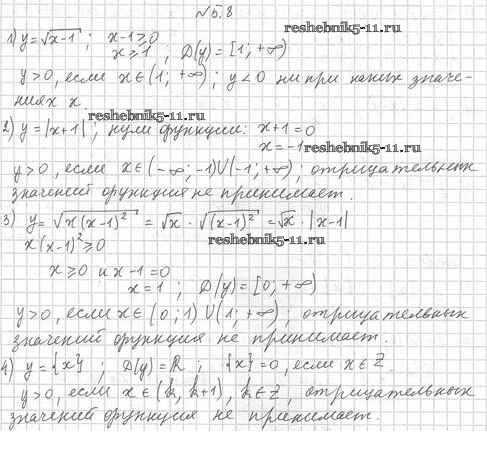 №5.8
reshebnik5-11.ru
1) y=√x-1 ; x-1≥0
x≥1 ; D(y)=[1;+∞)
y>0, если x∈(1;+∞); y<0 ни при каких значе-
ниях x.
reshebnik5-11.ru
2) y=|x+1| ; нули функции: x+1=0
x=-1
reshebnik5-11.ru
y>0, если x∈(-∞;-1)∪(-1;+∞), отрицательных
значений функция не принимает.
3) y=√x(x-1)² = √x · √(x-1)² = √x · |x-1|
reshebnik5-11.ru
x(x-1)²≥0
x≥0 и x-1=0
x=1 ; D(y)=[0;+∞)
y>0, если x∈(0;1)∪(1;+∞); отрицательных
значений функция не принимает.
4) y={x} ; D(y)=R ; {x}=0, если x∈Z.
y>0, если x∈(k, k+1), k∈Z, отрицательных
значений функция не принимает.